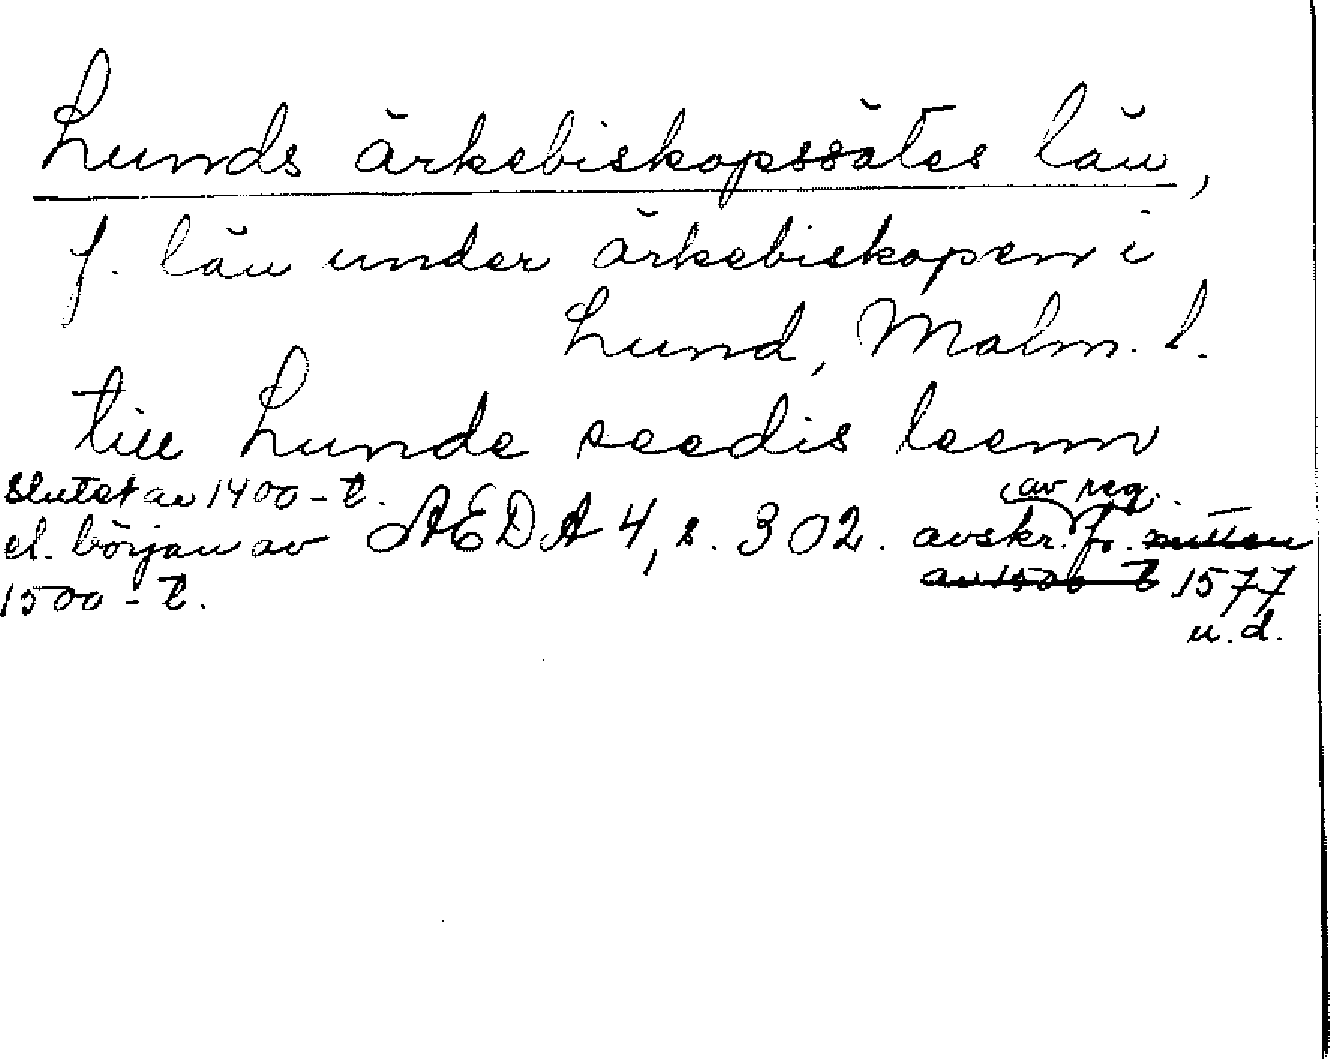 Lunds ärkebiskopssätes län,
f. län under ärkebiskopen i
Lund, Malm. l.
till Lunde seedis leenn
slutet av 1400-t. av reg.
el. början av AEDA 4, s. 302. avskr. fr. mitten
1500-t. av 1500-t 1577
u.d.